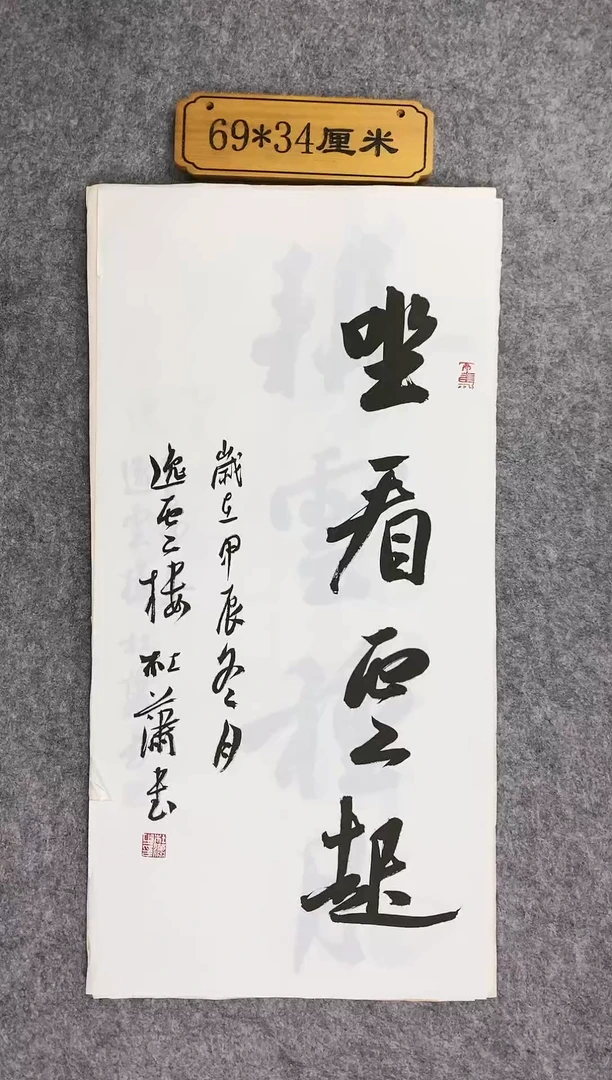 69*34厘米
坐看雲起
歲在甲辰冬月
逸雲樓杜蕭书